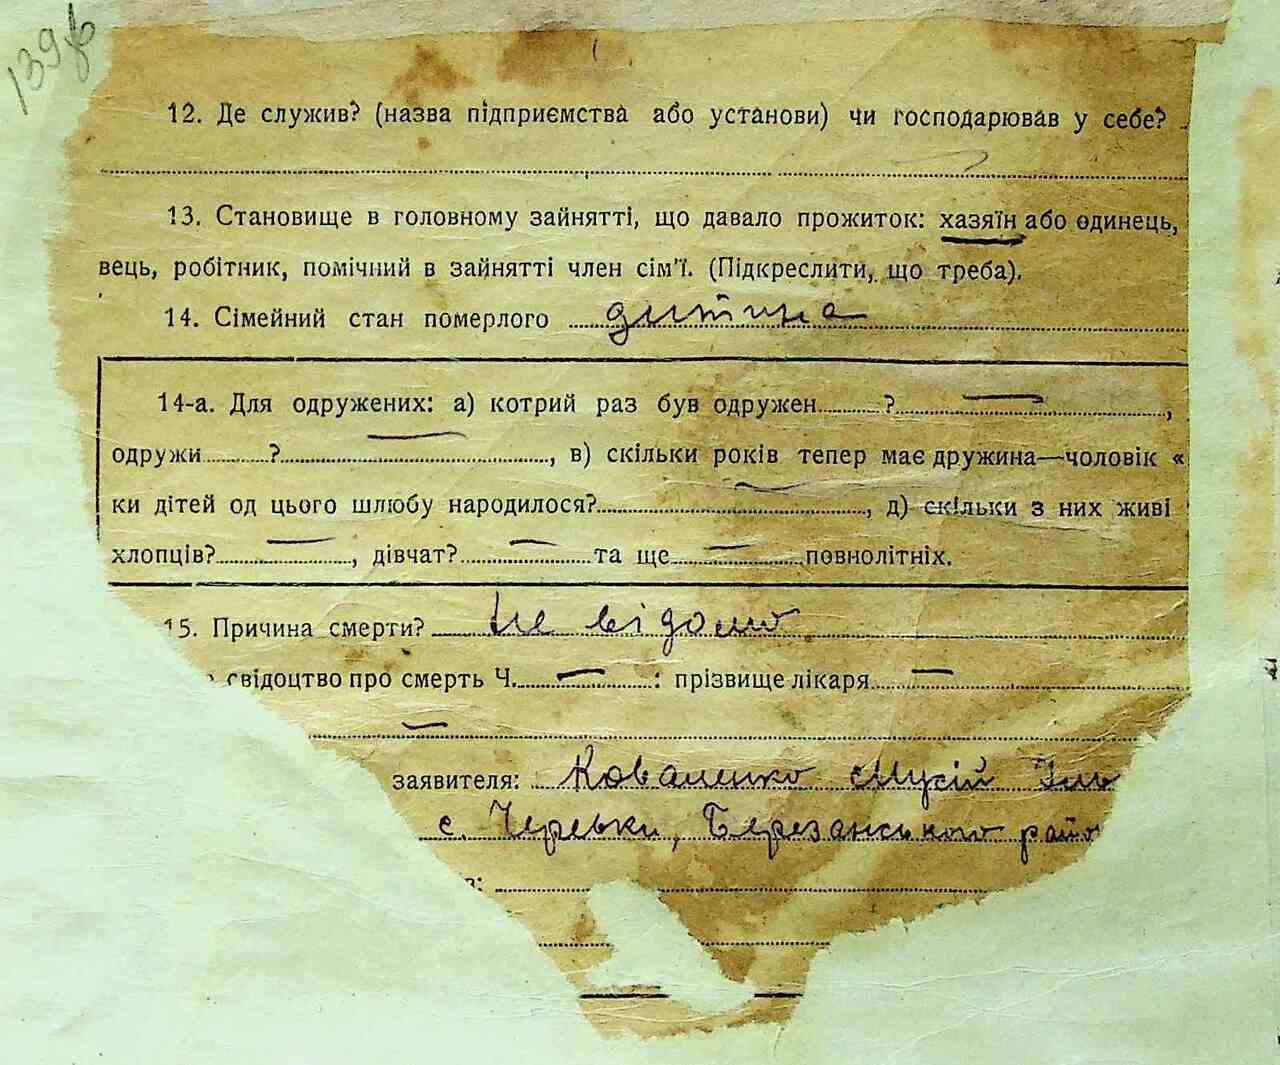 139
12. Де служив? (назва підприємства або установи) чи господарював у себе?
13. Становище в головному зайнятті, що давало прожиток: хазяїн або одинець,
вець, робітник, помічний в зайнятті член сім'ї. (Підкреслити, що треба).
14. Сімейний стан померлого дитина
14-а. Для одружених: а) котрий раз був одружен ?,
одружи ?, в) скільки років тепер має дружина—чоловік «
ки дітей од цього шлюбу народилося?, д) скільки з них живі
хлопців?, дівчат? та ще повнолітніх.
15. Причина смерти? Не відомо
свідоцтво про смерть Ч. : прізвище лікаря
заявителя: Коваленко Мусій Іль
с. Черевки, Березанського райо
в: